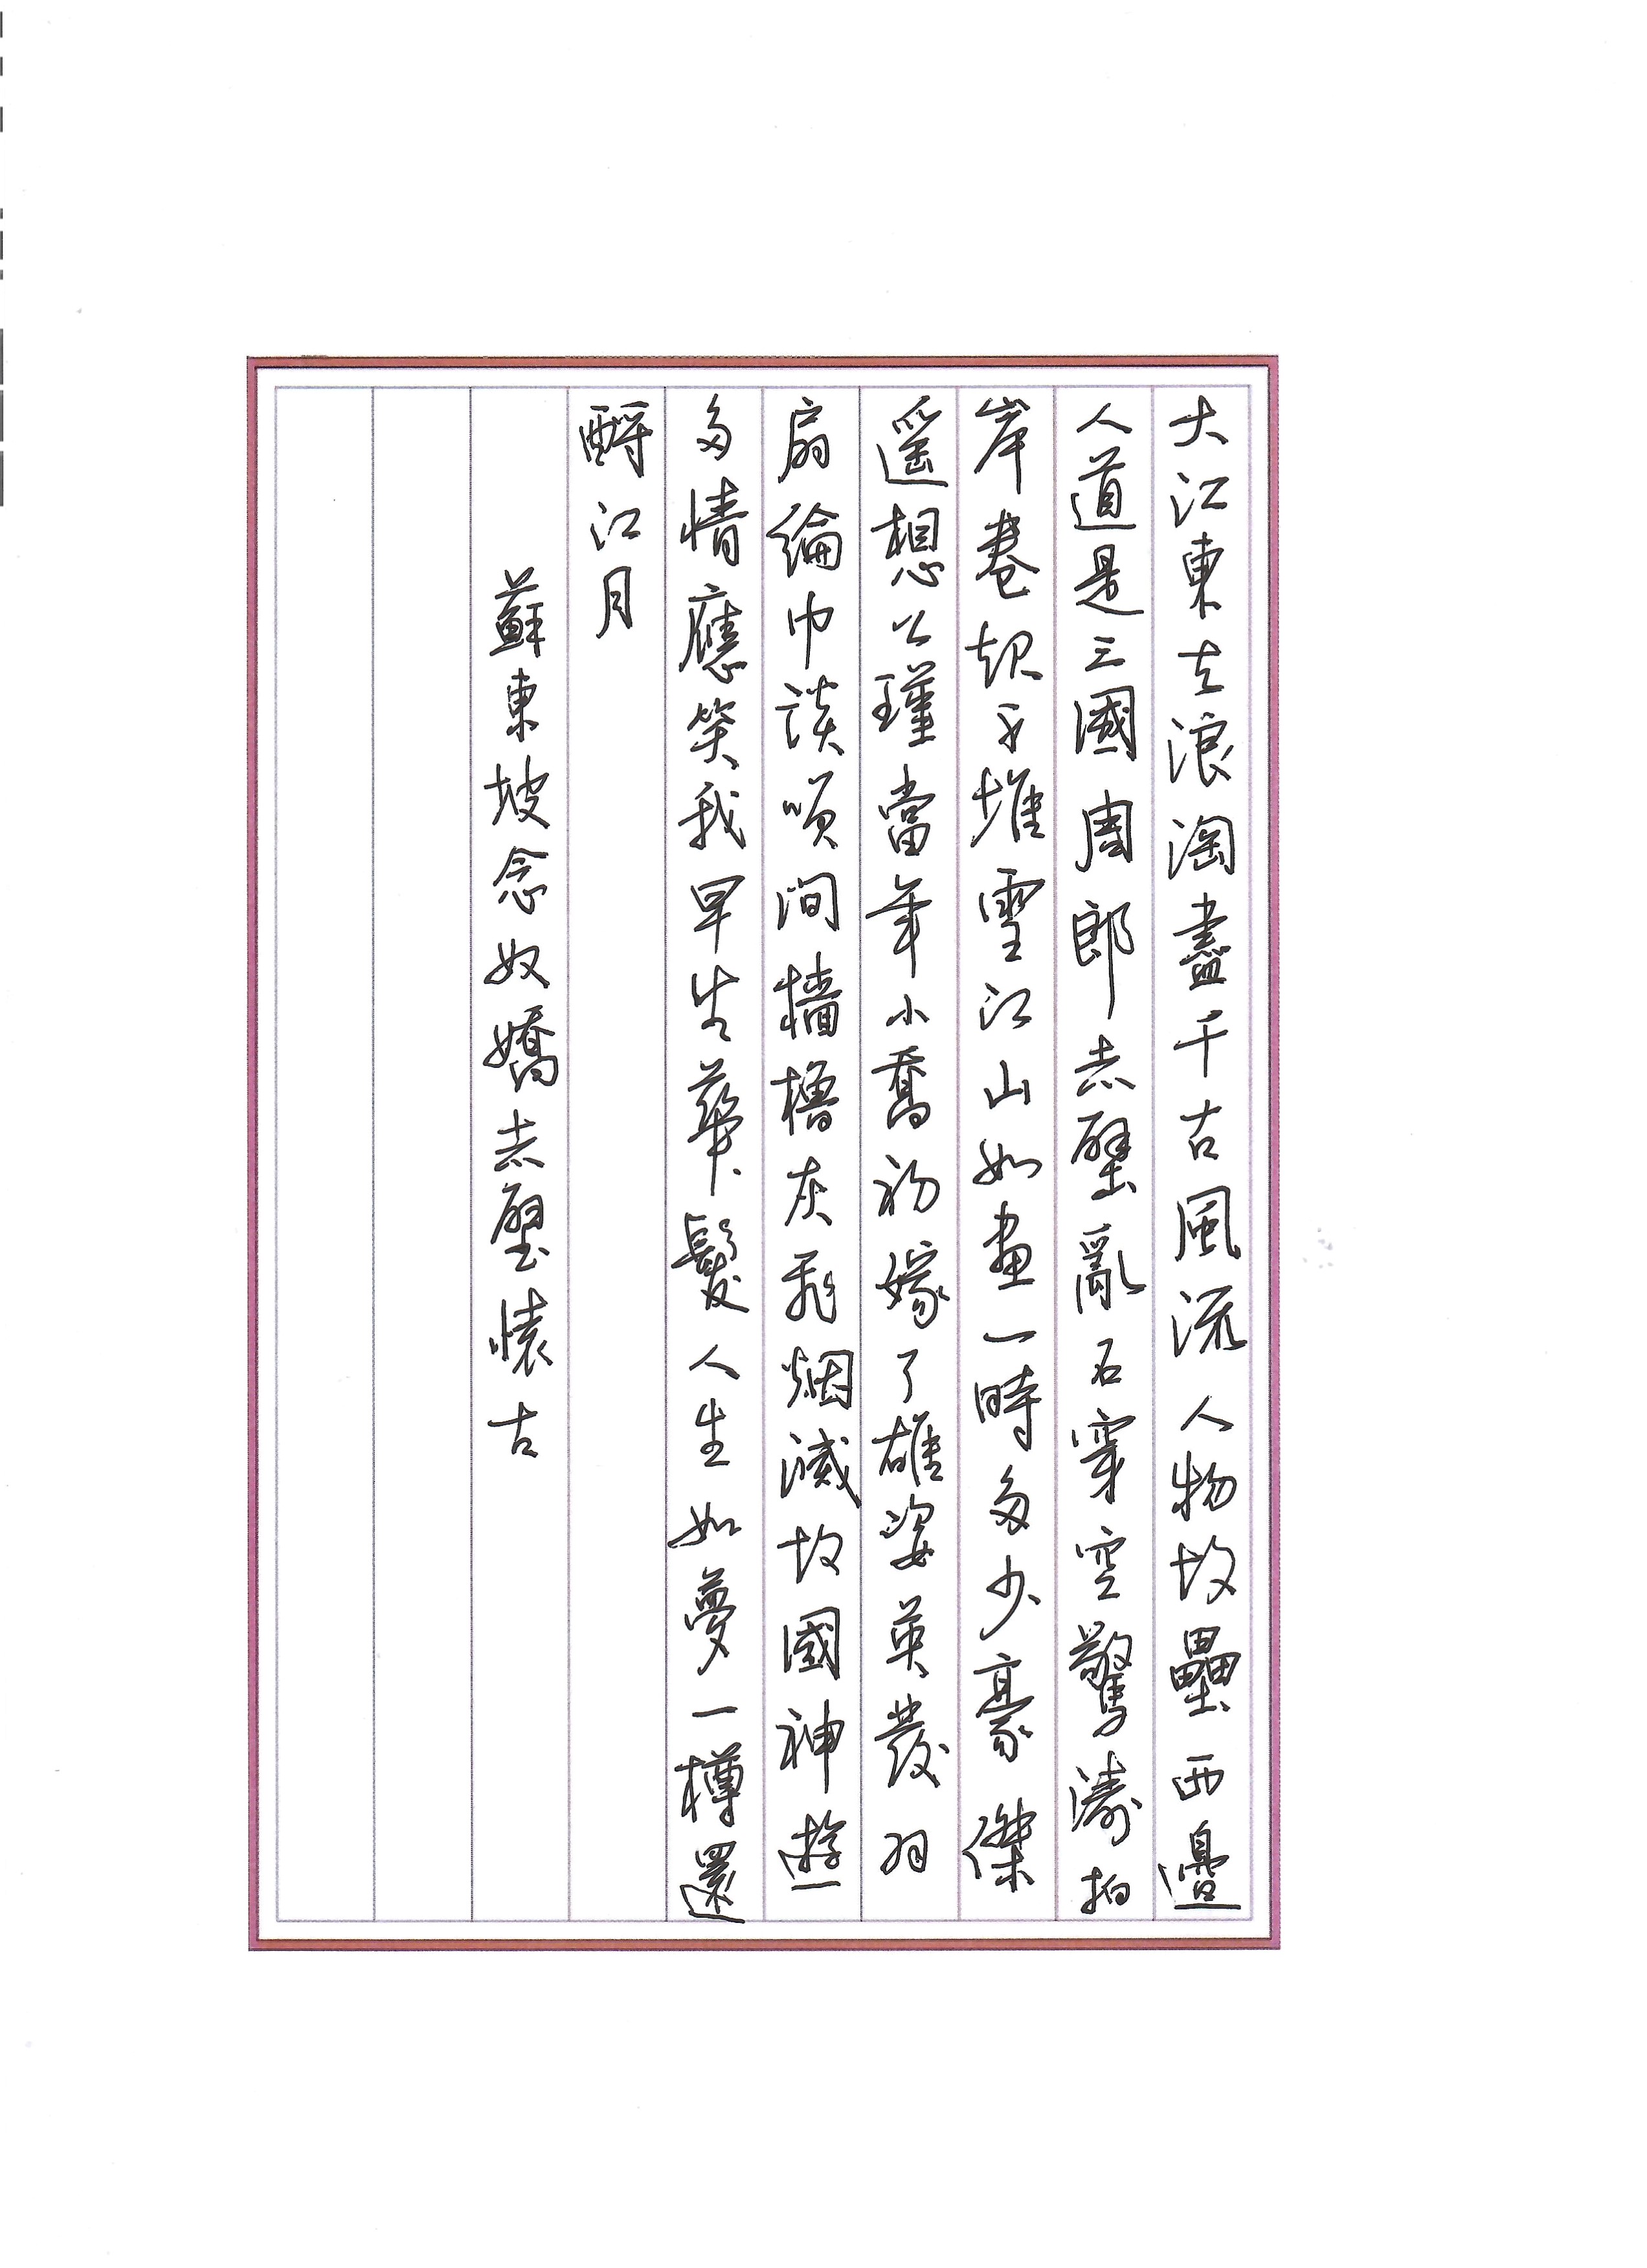 大江東去浪淘盡千古風流人物故壘西邊
人道是三國周郎赤壁亂石穿空驚濤拍
岸卷起千堆雪江山如畫一時多少豪傑
遥想公瑾當年小喬初嫁了雄姿英發羽
扇綸巾談咲間檣櫓灰飛烟滅故國神遊
多情應笑我早生華髮人生如夢一樽還
酹江月
蘇東坡念奴嬌赤壁懷古